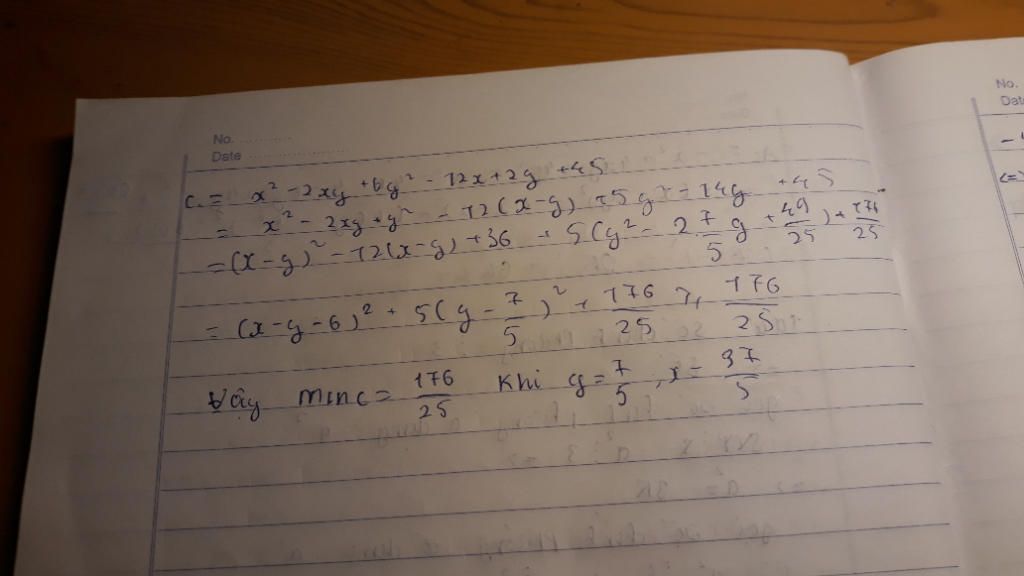 No. ............
Date ......................
C = x² - 2xy + 6y² - 12x + 2y + 45
= x² - 2xy + y² - 12(x-y) + 5y² - 14y + 45
= (x-y)² - 12(x-y) + 36 + 5(y² - 2 7/5 y + 49/25) + 176/25
= (x-y-6)² + 5(y - 7/5)² + 176/25 ≥ 176/25
Vậy MinC = 176/25 Khi y = 7/5, x = 37/5
No.
Date